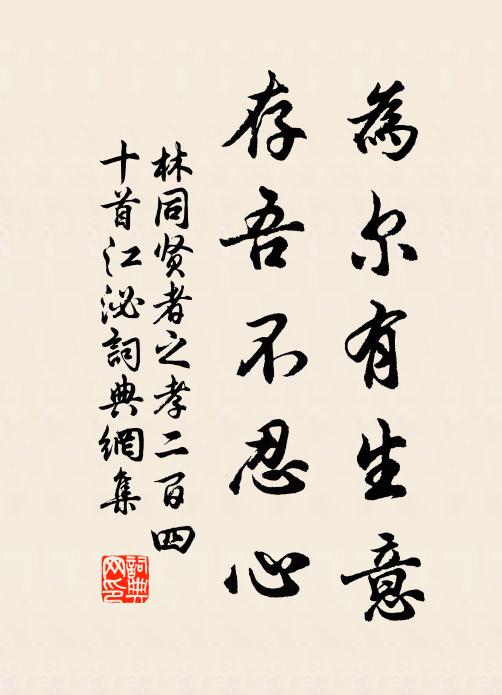 為尔有生意
存吾不忍心
林同贤者之孝二百四
十首江泌詞典網集
詞典
网印